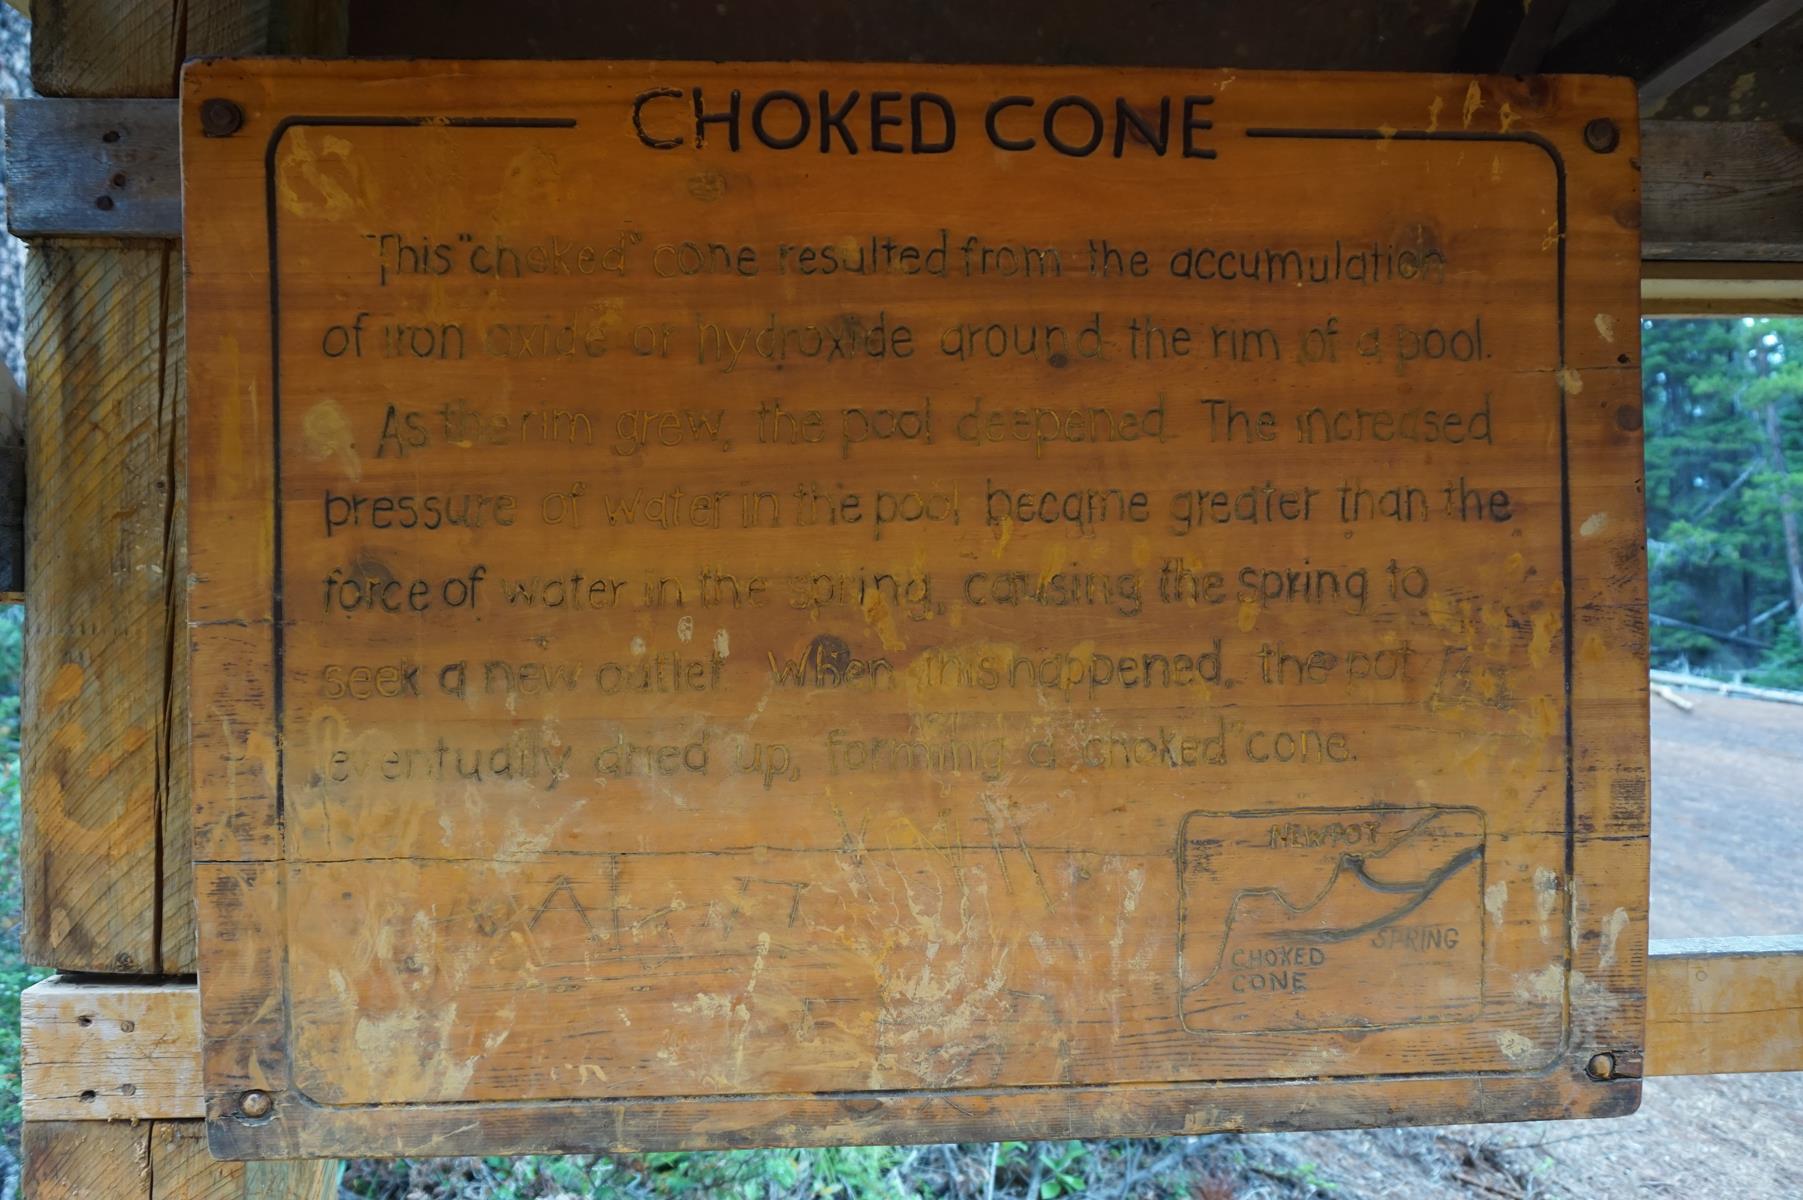 CHOKED CONE
This "choked" cone resulted from the accumulation
of iron oxide or hydroxide around the rim of a pool.
As the rim grew, the pool deepened. The increased
pressure of water in the pool became greater than the
force of water in the spring, causing the spring to
seek a new outlet. When this happened, the pot
eventually dried up, forming a "choked" cone.
NEW POT
SPRING
CHOKED
CONE